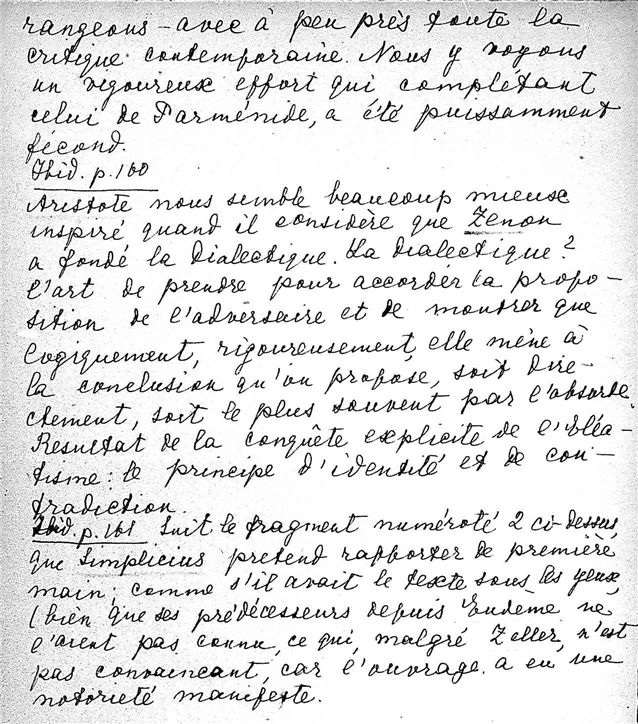 rangeons – avec à peu près toute la
critique contemporaine. Nous y voyons
un vigoureux effort qui complétant
celui de Parménide, a été puissamment
fécond.
Ibid. p. 160
Aristote nous semble beaucoup mieux
inspiré quand il considère que Zenon
a fondé la Dialectique. La dialectique?
l'art de prendre pour accorder la propo-
sition de l'adversaire et de montrer que
logiquement, rigoureusement, elle mène à
la conclusion qu'on propose, soit dire-
ctement, soit le plus souvent par l'absurde.
Resultat de la conquête explicite de l'Eléa-
tisme: le principe d'identité et de con-
tradiction.
Ibid. p. 161 Suit le fragment numéroté 2 ci-dessus
que Simplicius pretend rapporter de première
main; comme s'il avait le texte sous les yeux,
(bien que ses prédécesseurs depuis Eudème ne
l'aient pas connu, ce qui, malgré Zeller, n'est
pas convaincant, car l'ouvrage a eu une
notorieté manifeste.